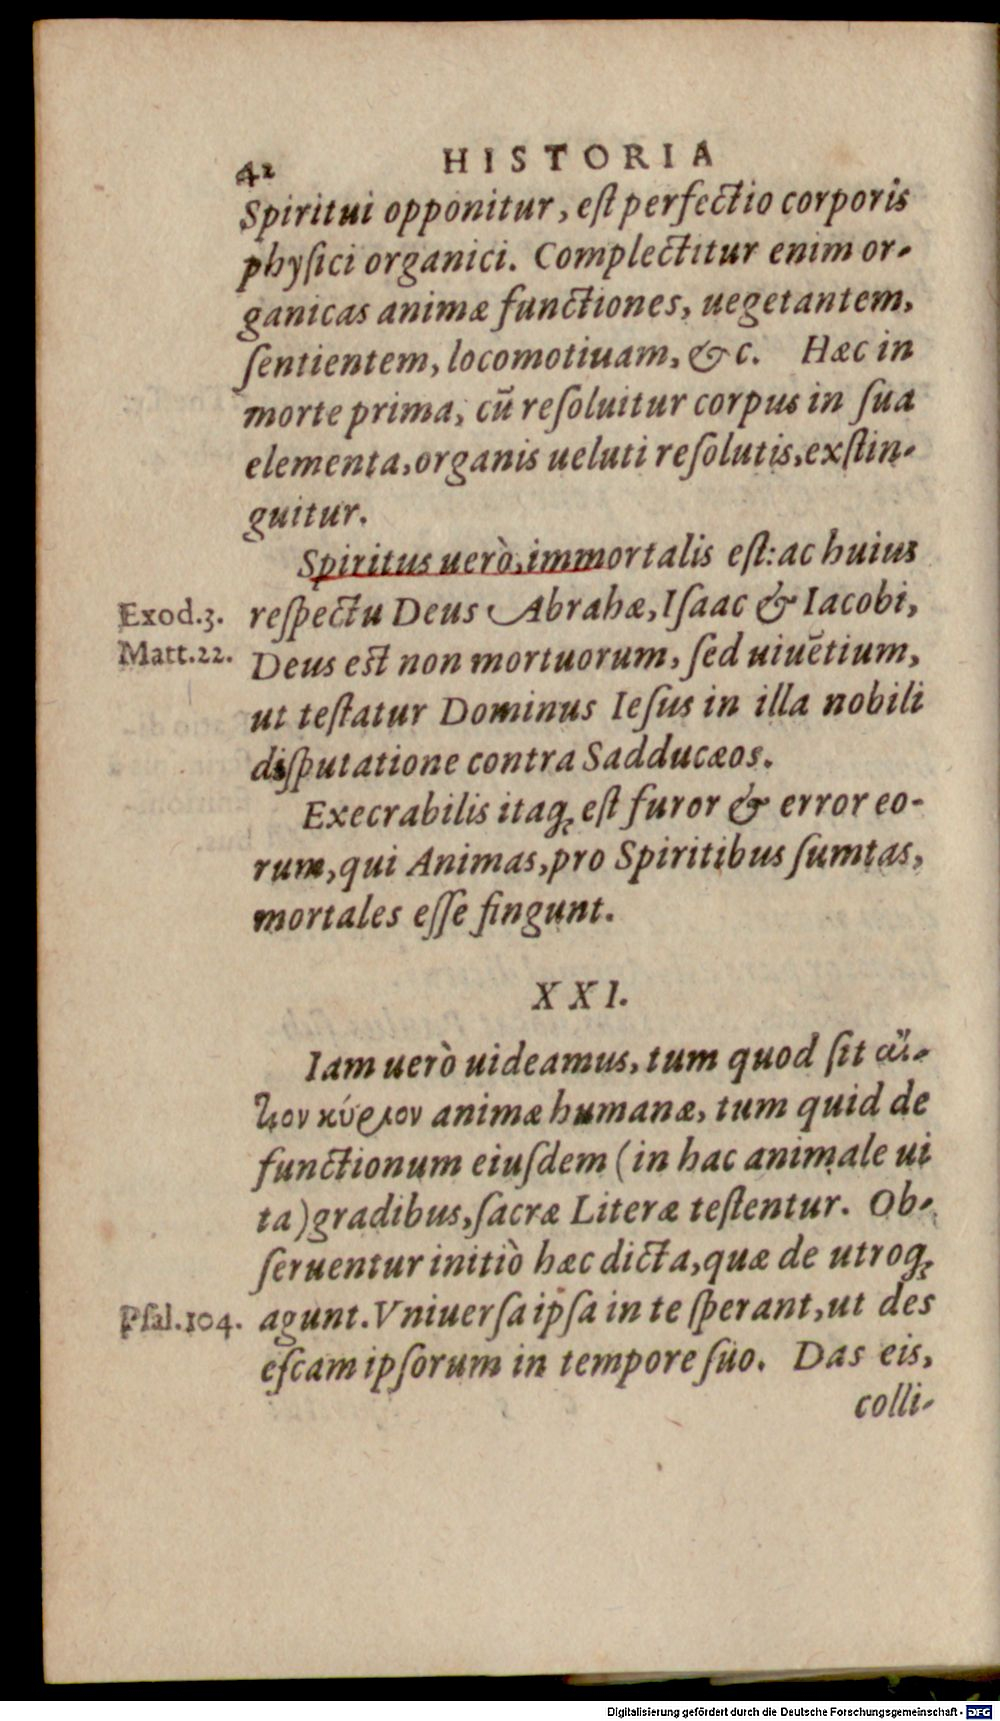 42 HISTORIA
Spiritui opponitur, eſt perfectio corporis
phyſici organici. Complectitur enim or-
ganicas animæ functiones, uegetantem,
ſentientem, locomotiuam, &c. Hæc in
morte prima, cū reſoluitur corpus in ſua
elementa, organis ueluti reſolutis, exſtin-
guitur.
Spiritus uerò, immortalis eſt: ac huius
Exod.3. reſpectu Deus Abrahæ, Iſaac & Iacobi,
Matt.22. Deus est non mortuorum, ſed uiuētium,
ut teſtatur Dominus Ieſus in illa nobili
diſputatione contra Sadducæos.
Execrabilis itaq; eſt furor & error eo-
rum, qui Animas, pro Spiritibus ſumtas,
mortales eſſe fingunt.
XXI.
Iam uerò uideamus, tum quod ſit αἴ-
τιον κύριον animæ humanæ, tum quid de
functionum eiuſdem (in hac animale ui
ta) gradibus, ſacræ Literæ teſtentur. Ob-
ſeruentur initiò hæc dicta, quæ de utroq;
Pſal.104. agunt. Vniuerſa ipſa in te ſperant, ut des
eſcam ipſorum in tempore ſuo. Das eis,
colli-
Digitalisierung gefördert durch die Deutsche Forschungsgemeinschaft - DFG